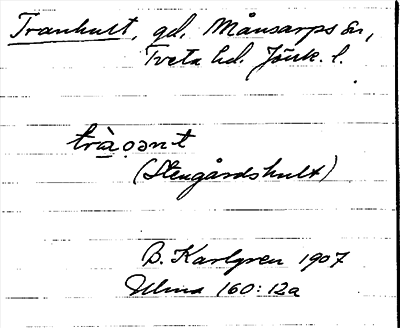 Tranhult, gd. Månsarps sn,
Tveta hd. Jönk. l.
tràọənt
(Stengårdshult)
B. Karlgren 1907
Ulma 160:12a